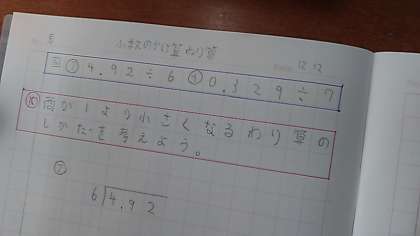 小数のかけ算わり算
12.12
問 ㋐ 4.92÷6 ㋑ 0.329÷7
商が1より小さくなるわり算の
しかたを考えよう。
㋐
6 4.92